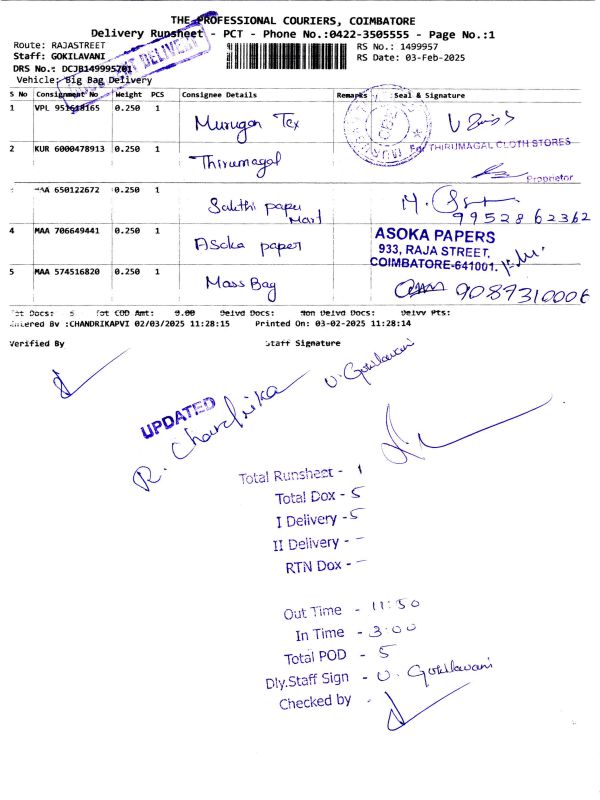 THE PROFESSIONAL COURIERS, COIMBATORE
Delivery Runsheet - PCT - Phone No.:0422-3505555 - Page No.:1
Route: RAJASTREET
RS No.: 1499957
Staff: GOKILAVANI
RS Date: 03-Feb-2025
DRS No.: DCJB149995701
Vehicle: Big Bag Delivery
S No Consignment No Weight PCS Consignee Details Remarks Seal & Signature
1 VPL 951618165 0.250 1 Murugan Tex
2 KUR 6000478913 0.250 1 Thirumagal For THIRUMAGAL CLOTH STORES
Proprietor
MAA 650122672 0.250 1 Sakthi paper Mart
9952862362
4 MAA 706649441 0.250 1 Asoka paper
ASOKA PAPERS
933, RAJA STREET,
COIMBATORE-641001.
5 MAA 574516820 0.250 1 Mass Bag 9087310006
Tot Docs: 5 Tot COD Amt: 0.00 Delvd Docs: Non Delvd Docs: Delvy Pts:
Entered By :CHANDRIKAPVI 02/03/2025 11:28:15 Printed On: 03-02-2025 11:28:14
Verified By Staff Signature
U. Gokilavani
UPDATED
R. Chandrika
Total Runsheet - 1
Total Dox - 5
I Delivery - 5
II Delivery - -
RTN Dox - -
Out Time - 11:50
In Time - 3:00
Total POD - 5
Dly.Staff Sign - U. Gokilavani
Checked by -